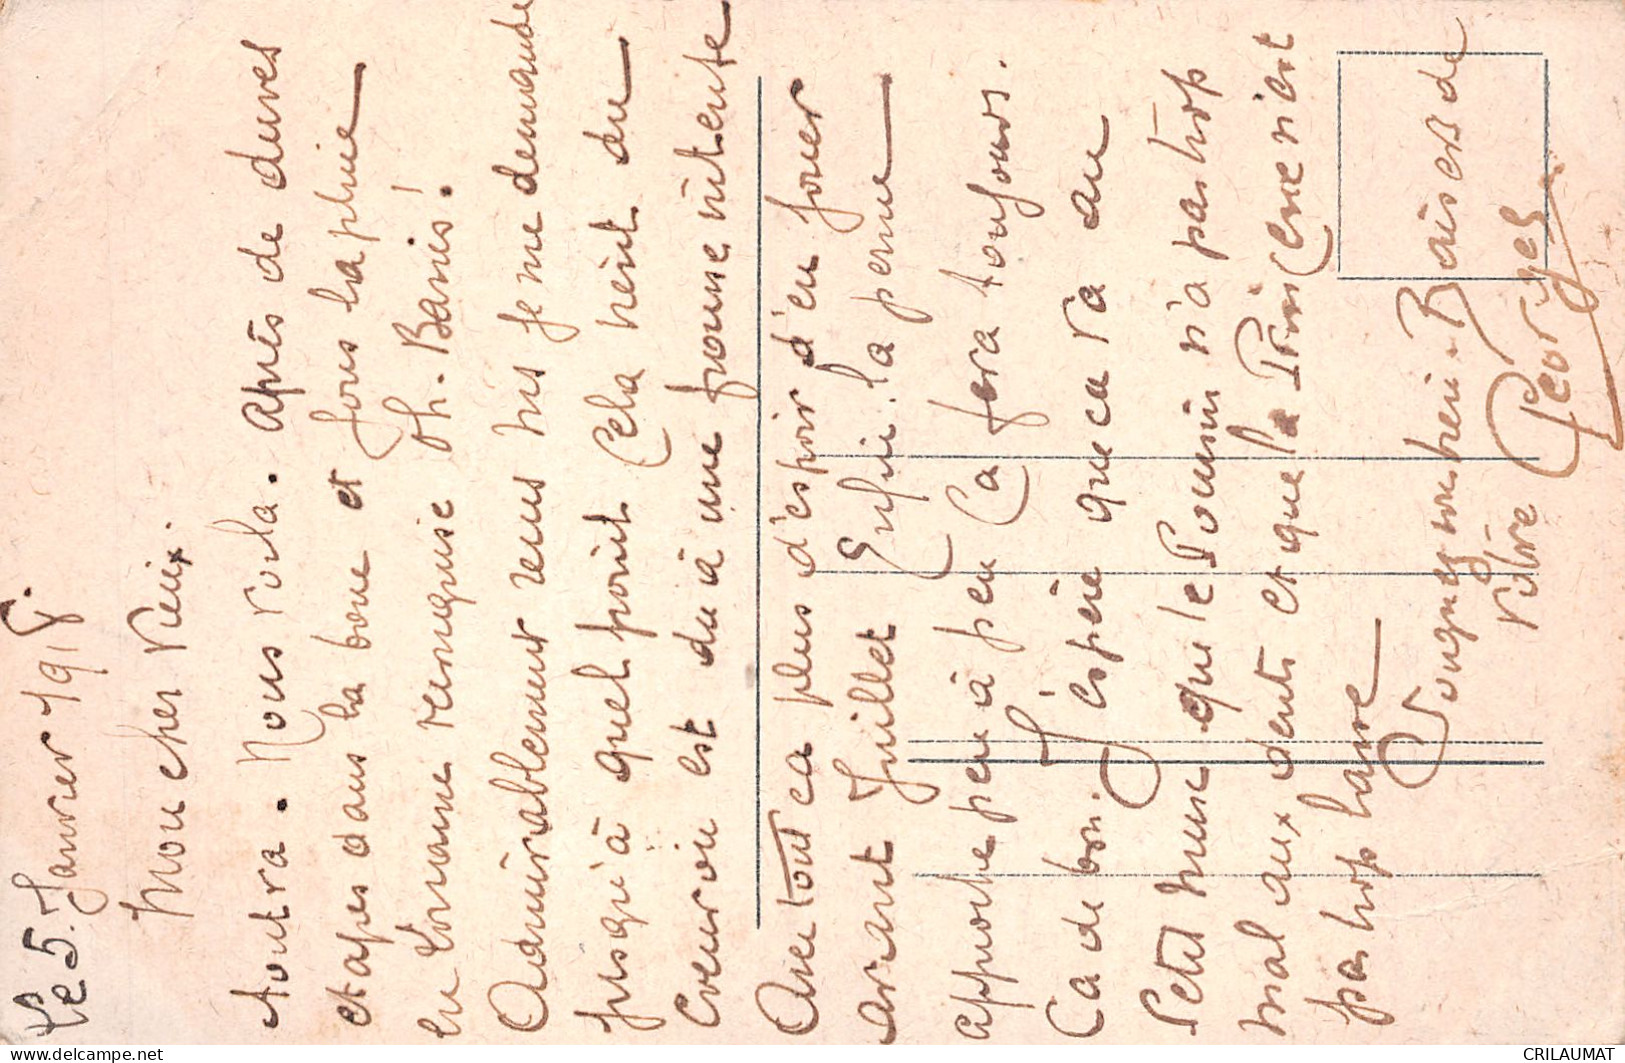 Le 5 Janvier 1918.
Mon cher Vieux.
tout va. Nous voila. Après de dures
etapes dans la boue et sous la pluie
en Lorraine reconquise Oh. Banis!
Admirablement reçus ns je me demande
jusqu'à quel point Cela tient du
Creuvoi est du à une frousse intense
Avec tout ca plus d'espoir d'en jouer
avant Juillet Enfin. la perme
approche peu à peu Ca fera toujours.
Ca de bon. J'espère que ca va au
Petit Mune que le Poumin n'a pas trop
mal aux dents et que la Princesse n'est
pas trop lasse
Soignez vous bien. Baisers de
Votre Georges
delcampe.net
CRILAUMAT